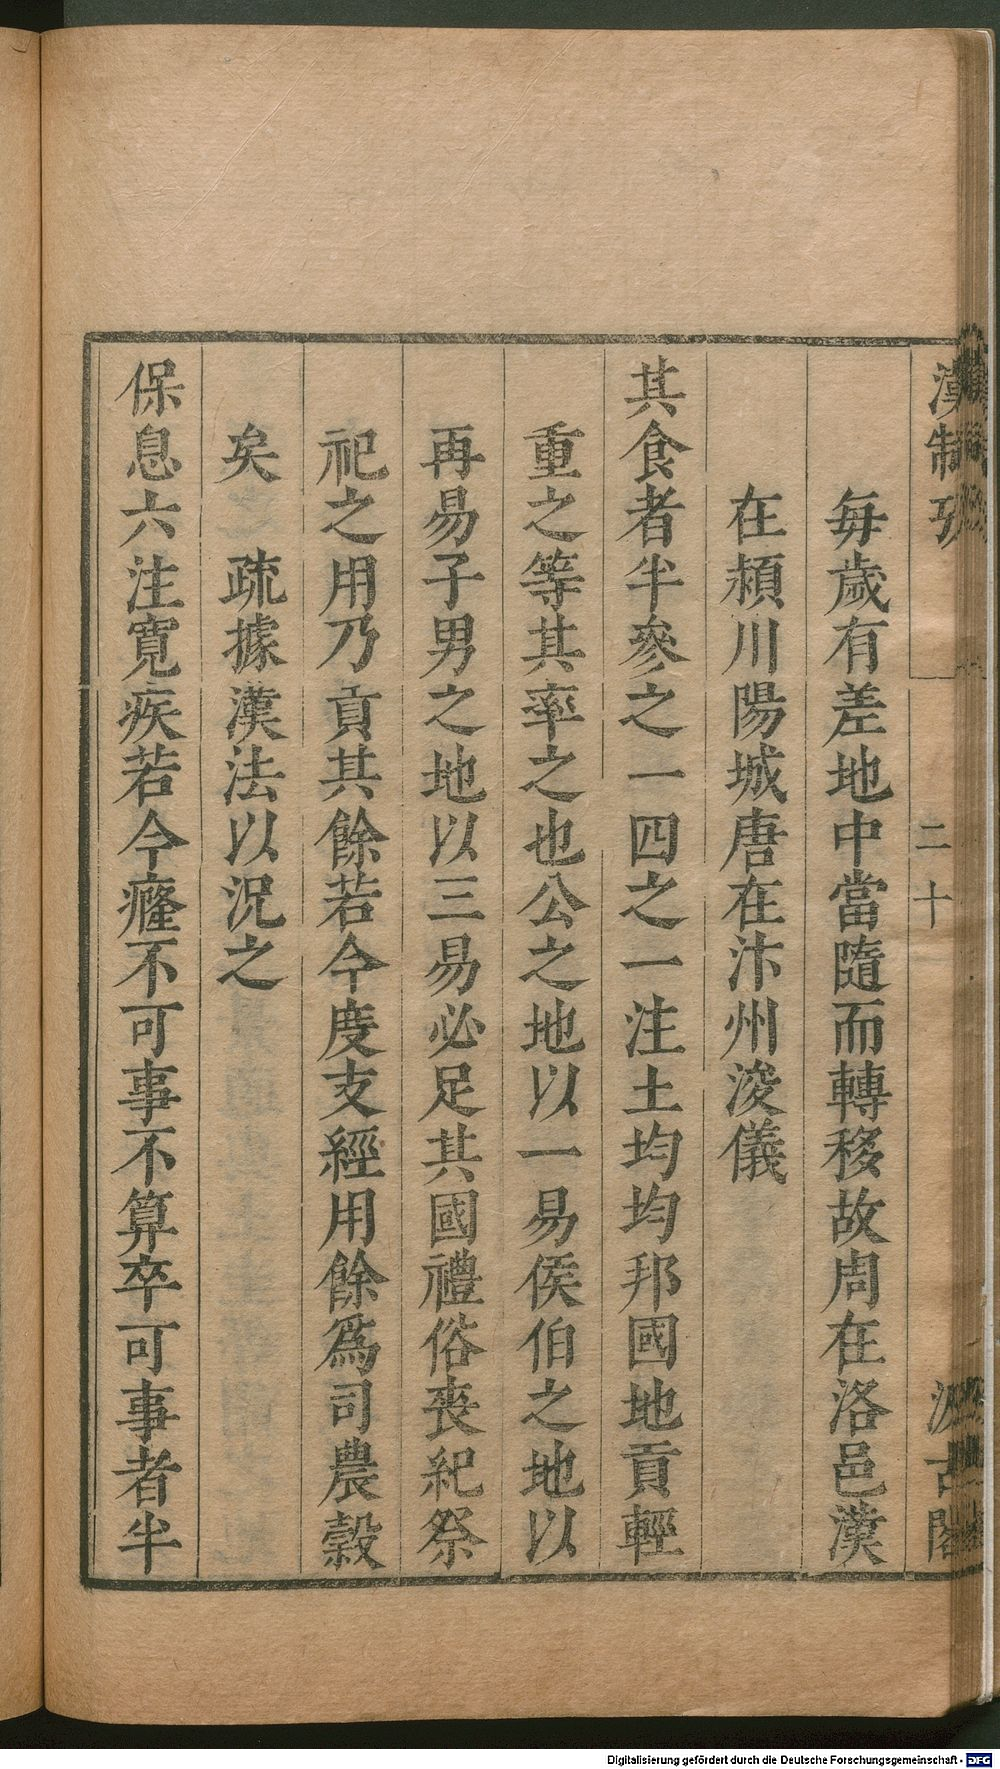 漢制攷
二十
汲古閣
每歲有差地中當隨而轉移故周在洛邑漢
在潁川陽城唐在汴州浚儀
其食者半參之一四之一注土均均邦國地貢輕
重之等其率之也公之地以一易侯伯之地以
再易子男之地以三易必足其國禮俗喪紀祭
祀之用乃貢其餘若今度支經用餘爲司農穀
矣　疏據漢法以況之
保息六注寬疾若今癃不可事不算卒可事者半
Digitalisierung gefördert durch die Deutsche Forschungsgemeinschaft - DFG